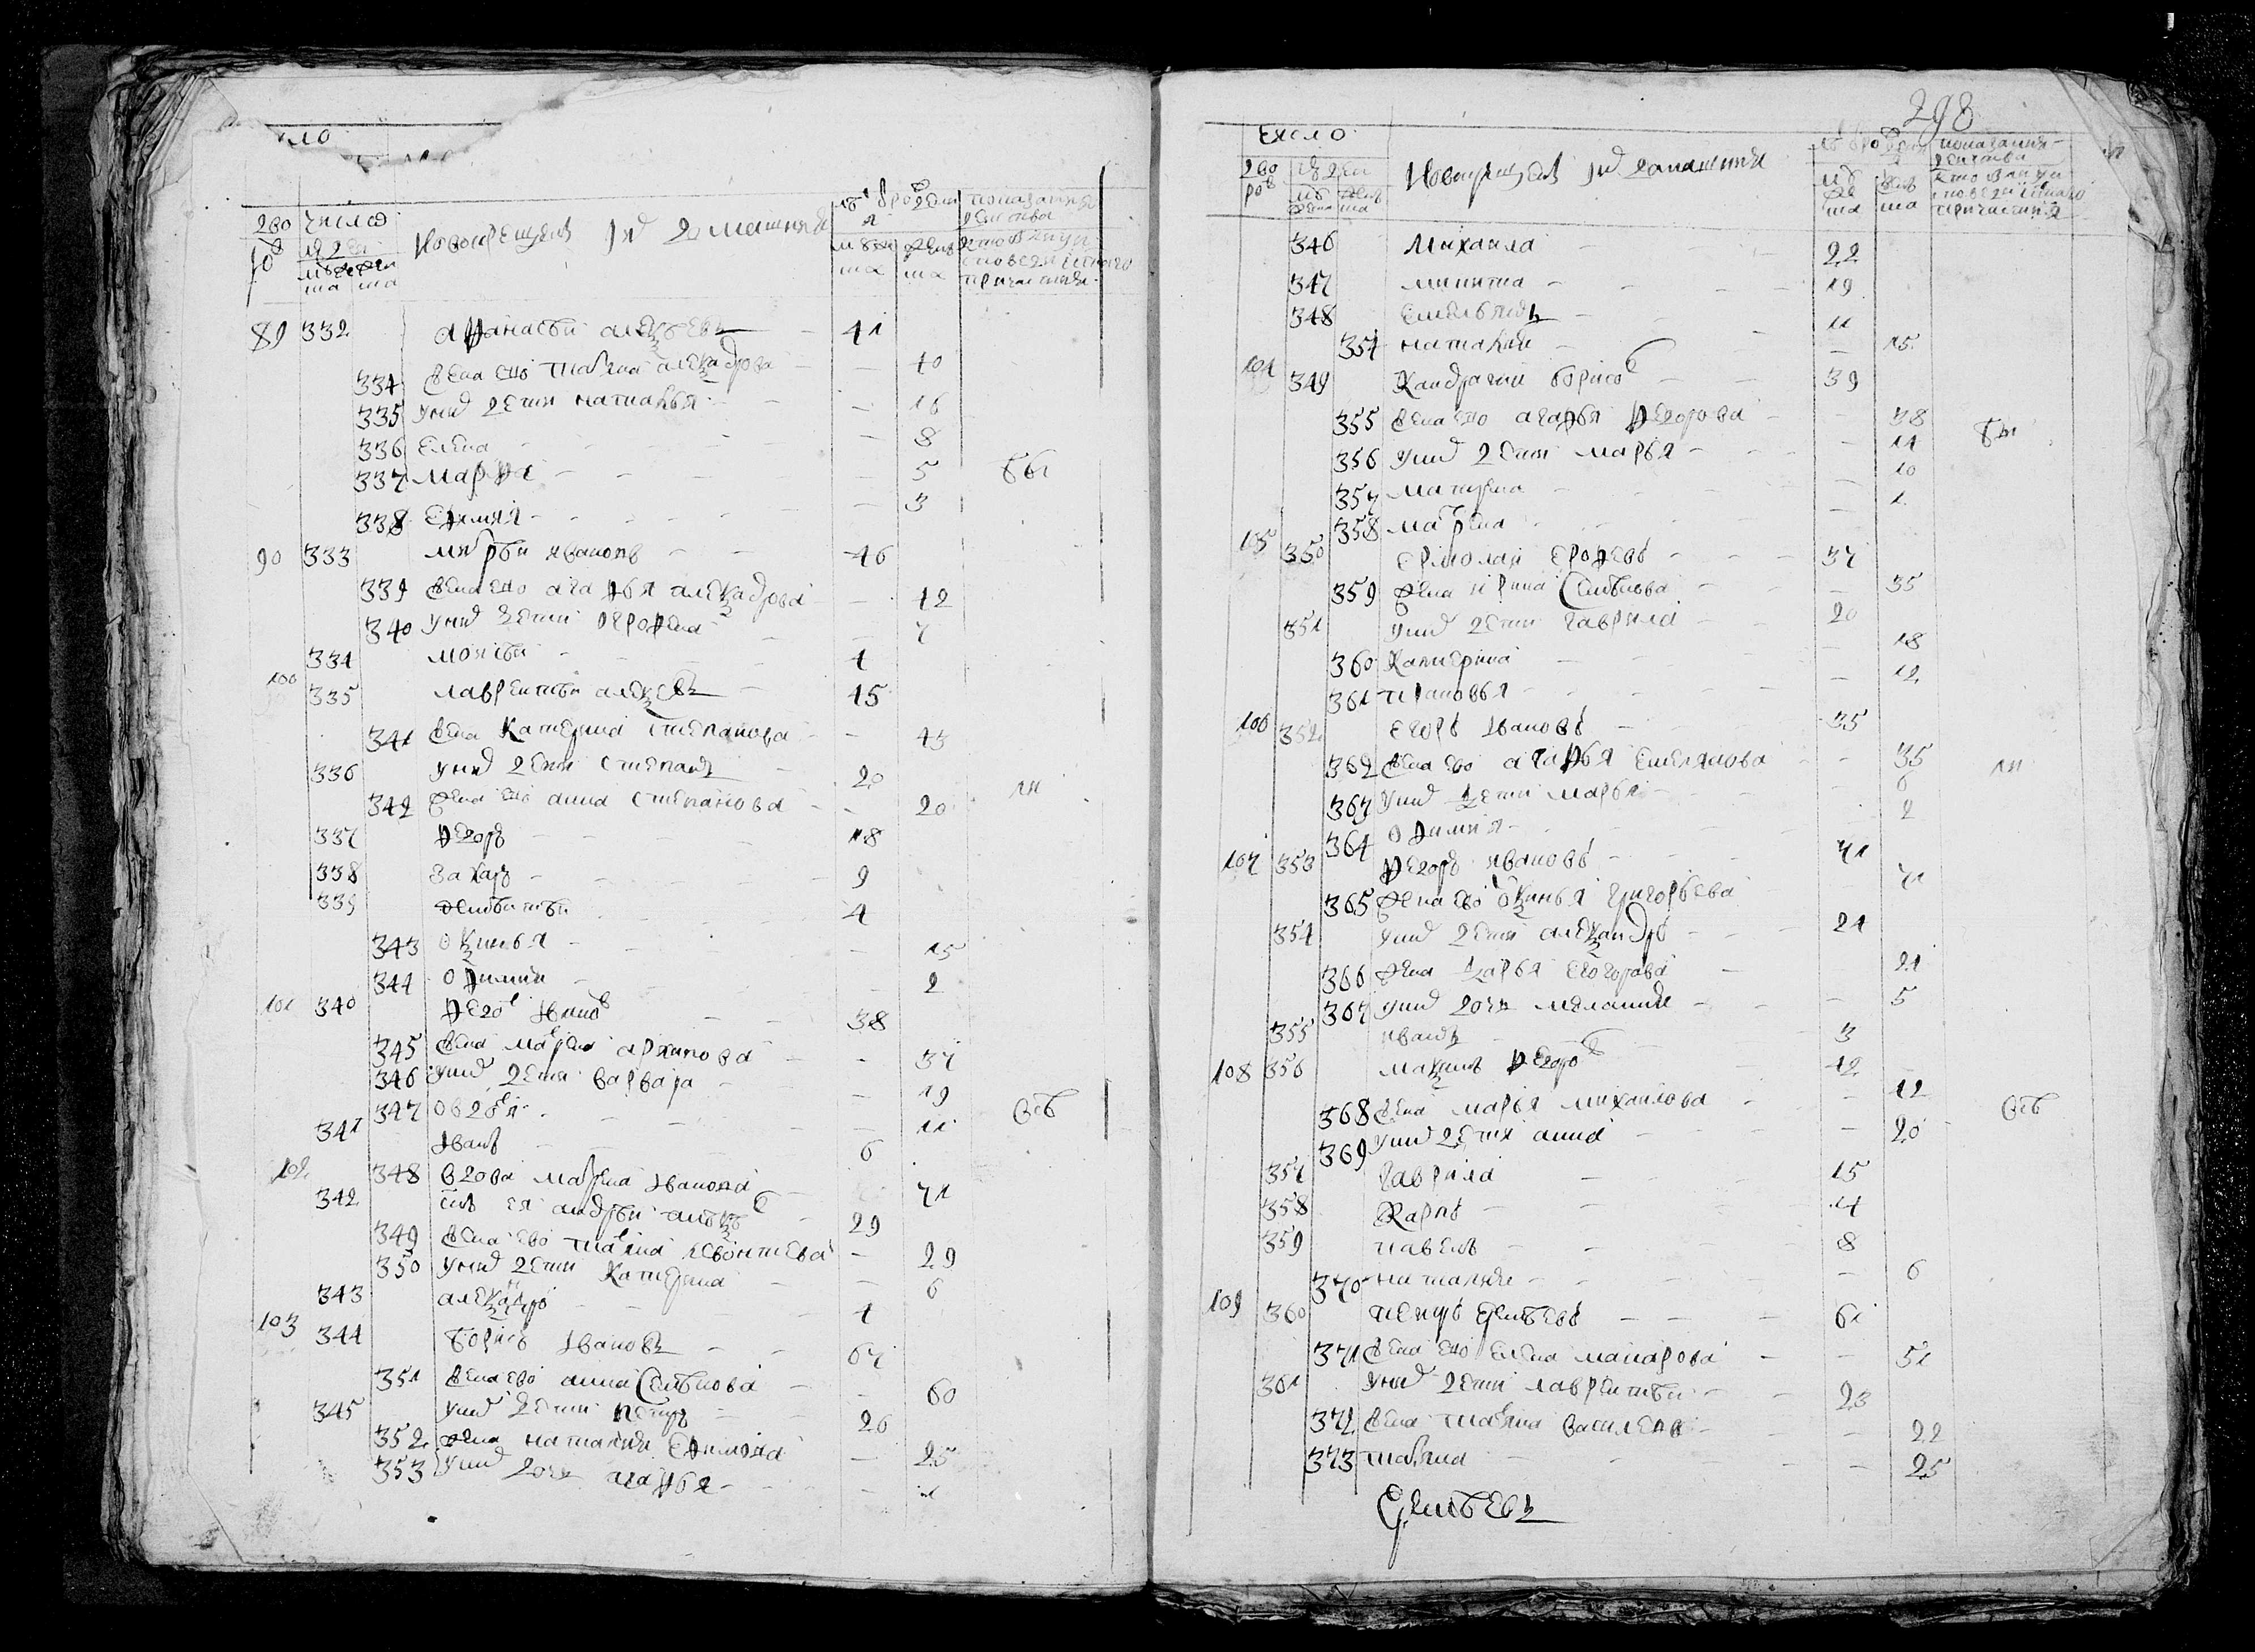 число
дво ров
число людей
мужеска
женска
Новокрещены и их домашния
лѣта от рождения
мужеска
женска
показание действа
кто был у исповеди и святаго причастия
89 332 Афанасьи алеѯѣевъ 41
334 жена ево татьяна алеѯадрова 40
335 у них дети наталья 16
336 Елена 8
337 марфа 5 бы
338 Ефимия 3
90 333 андрѣи иванов 46
339 жена ево агафья алеѯадрова 42
340 у них дети огрофена 7
334 моисѣи 4
100 335 лаврентѣи алеѯѣевъ 45
341 жена Катерина степанова 43
336 у них дети степанъ 20
342 жена ево анна степанова 20 ли
337 федоръ 18
338 Захаръ 9
339 4
343 оѯинья 15
344 офимия 2
101 340 федоръ иванов 38
345 жена марья архипова 37
346 у них дети варвара 19
347 овдотья 11 всѣ
341 иванъ 6
102 348 вдова матрена иванова 71
342 сынъ ея андрѣи 29
349 жена ево татьяна левонтиева 29
350 у них дети катерина 6
343 алеѯадръ 4
103 344 борисъ ивановъ 67
351 жена ево анна семѣнова 60
345 у них дети петръ 26
352 жена наталия Ефимова 25
353 у них дочь агафья
298
число
дво ров
людей
мужеска
женска
Новокрещены и их домашния
лѣта от рождения
мужеска
женска
показания действа
кто был у исповеди и святаго причастия
346 михаила 22
347 никита 19
348 Емельянъ 11
354 наталия 15
104 349 Кандратии борисов 39
355 жена ево агафья федорова 38 бы
356 у них дети марья 14
357 матрена 10
358 матрена 1
105 350 ермолаи ерофевъ 37
359 жена ирина семѣнова 35
351 у них дети гаврила 20
360 Катерина 18
361 просковья 12
106 352 егоръ ивановъ 35
362 жена ево агафья Емелянова 35 ли
363 у них дети марья 6
364 офимия 2
107 353 федоръ ивановъ 71
365 жена ево оѯинья григорьева 71
354 у них дети алеѯандръ 21
366 жена дарья егорова 21
367 у них дочь мелания 5
355 иванъ 3
108 356 маѯимъ федоров 42
368 жена марья михаилова 42 всѣ
369 у них дети анна 20
357 гаврила 15
358 Карпъ 4
359 павелъ 8
370 наталия 6
109 360 петръ 61
371 жена ево елена макарова 51
361 у них дети лаврентѣи 23
372 жена татьяна василева 22
373 татьяна 25